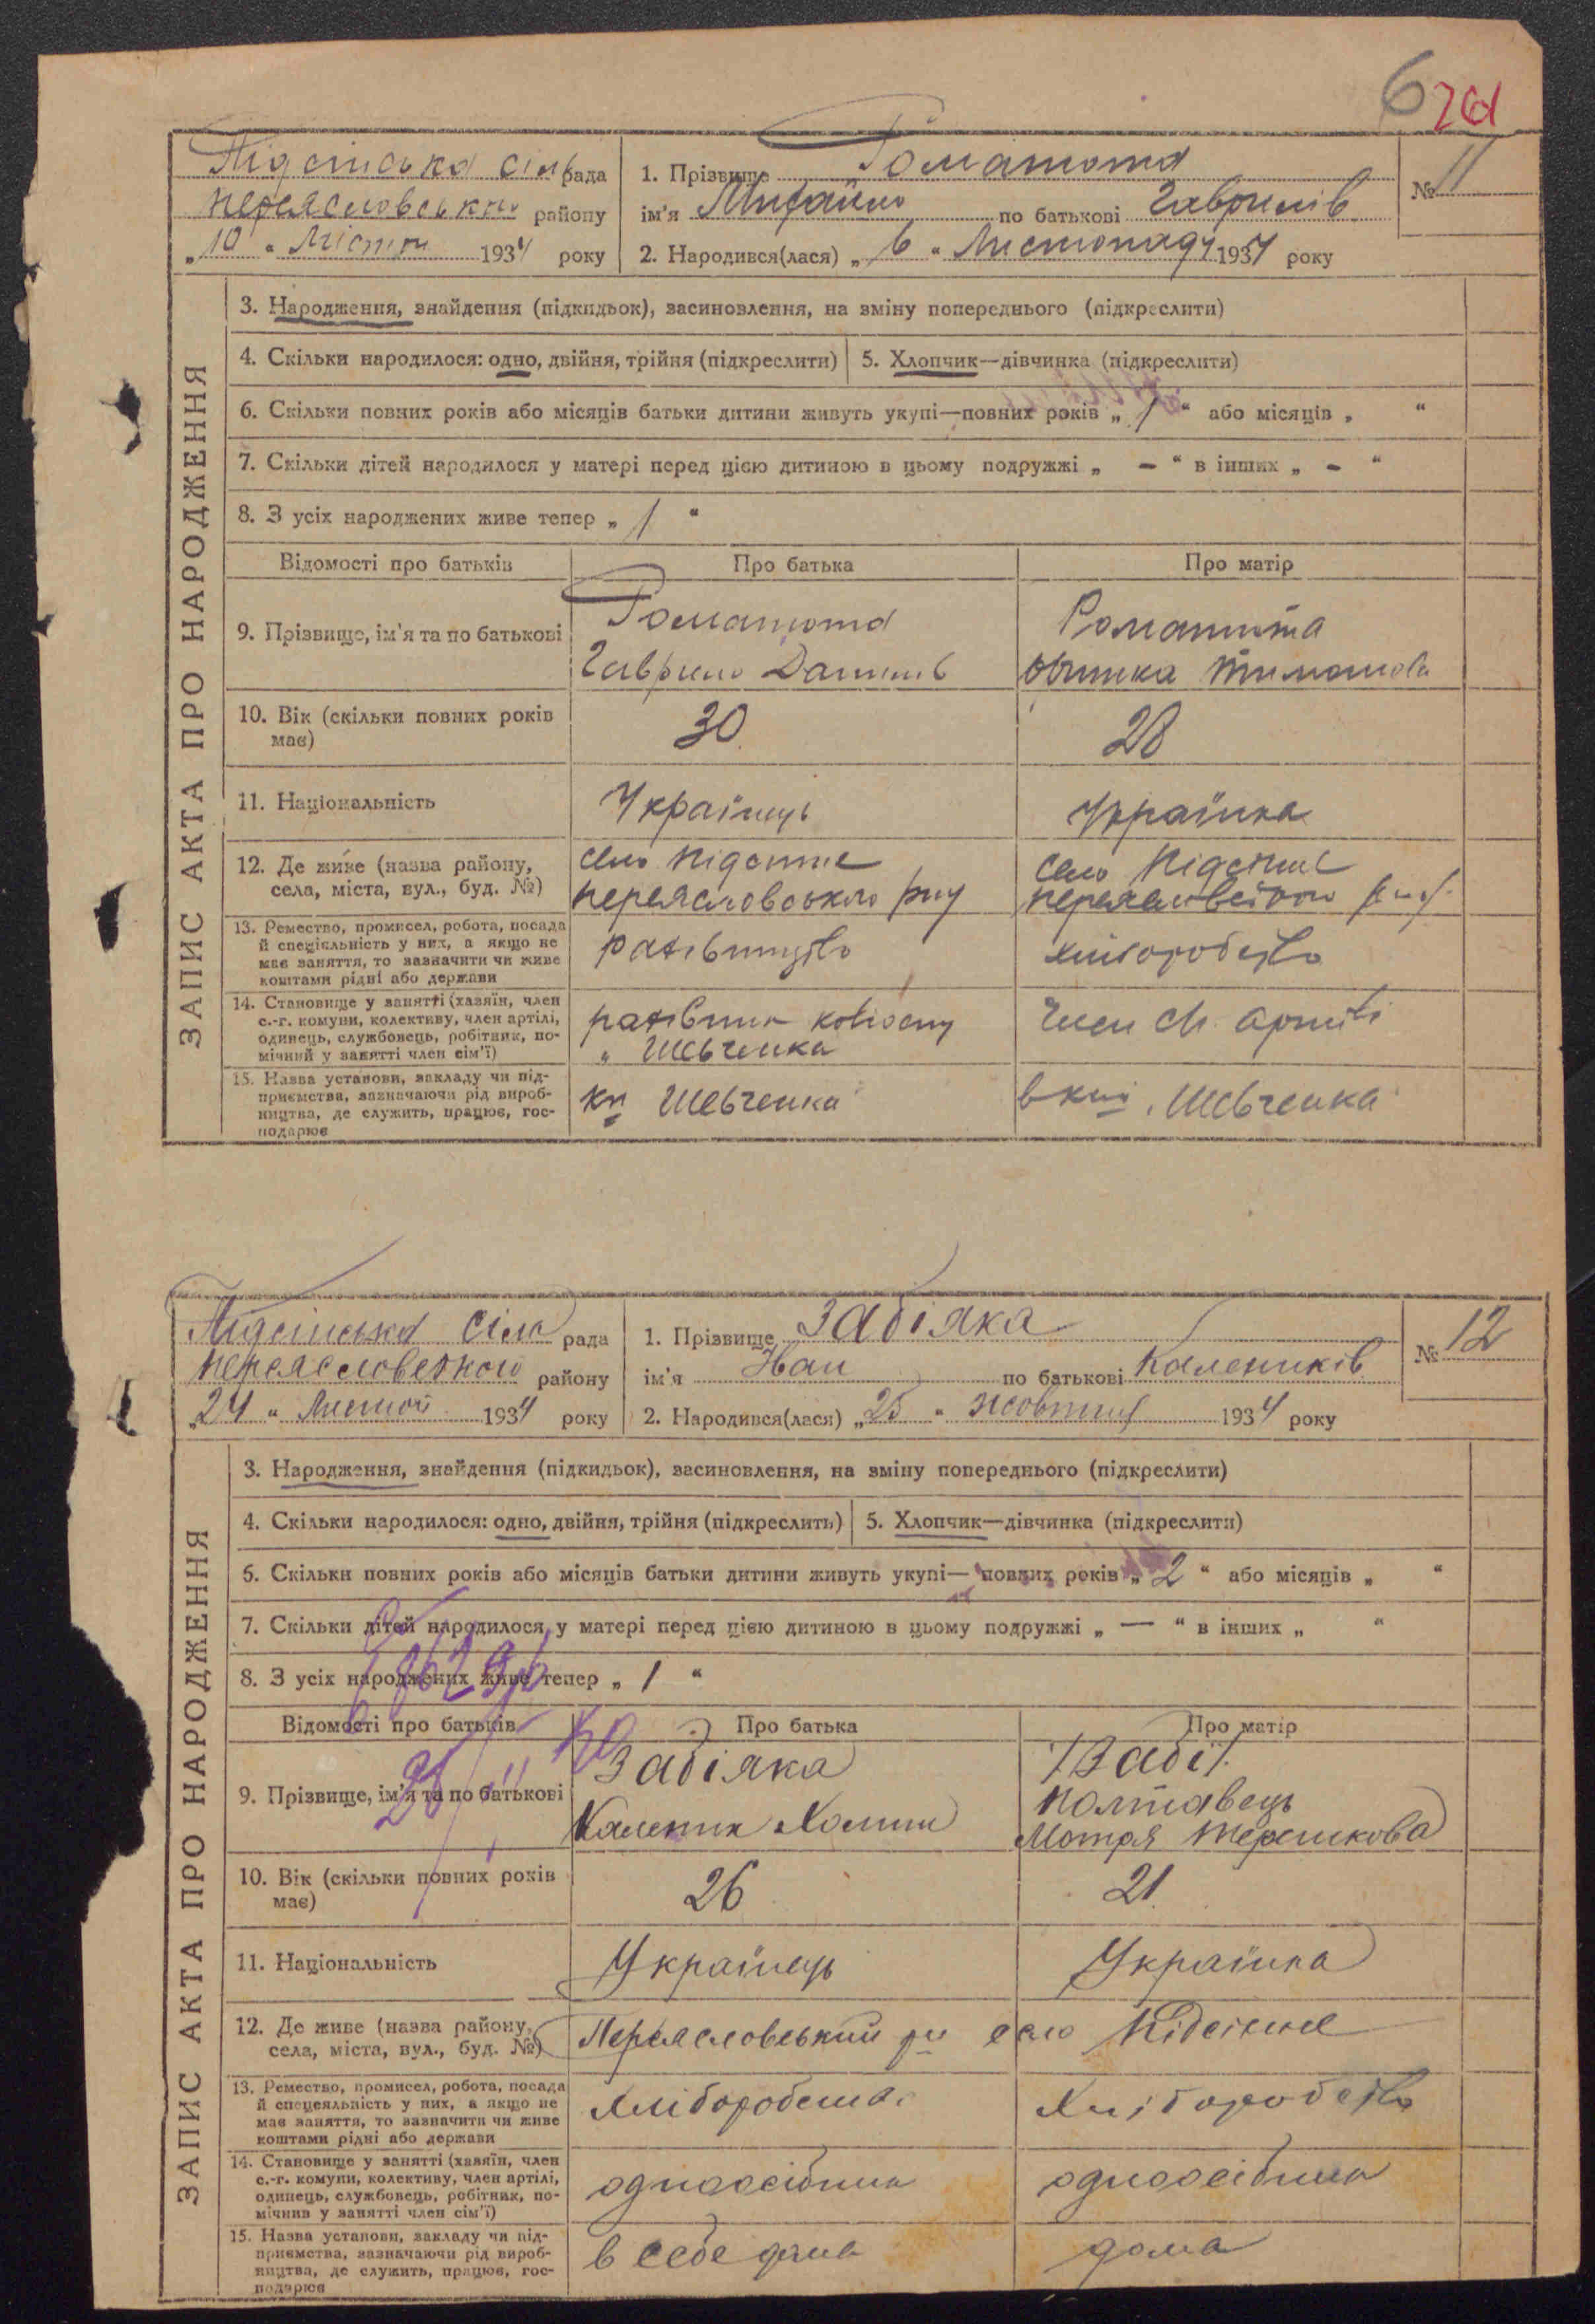 6
Підсінська сіль рада
Переясловського району
„10" Листоп 1934 року
1. Прізвище Романюта
ім'я Михайло по батькові Гаврилів
2. Народився(лася) „6" Листопаду 1934 року
№ 11
ЗАПИС АКТА ПРО НАРОДЖЕННЯ
3. Народження, знайдення (підкидьок), засиновлення, на зміну попереднього (підкреслити)
4. Скільки народилося: одно, двійня, трійня (підкреслити) 5. Хлопчик—дівчинка (підкреслити)
6. Скільки повних років або місяців батьки дитини живуть укупі—повних років „1" або місяців „ "
7. Скільки дітей народилося у матері перед цією дитиною в цьому подружжі „ - " в інших „ - "
8. З усіх народжених живе тепер „ 1 "
Відомості про батьків Про батька Про матір
9. Прізвище, ім'я та по батькові Романюта Романюта
Гаврило Данилів
10. Вік (скільки повних років має) 30 28
11. Національність Українець Українка
12. Де живе (назва району, села, міста, вул., буд. №) село Підсінне село Підсінне
Переясловського рну
13. Ремество, промисел, робота, посада
й спеціяльність у них, а якщо не
має заняття, то зазначити чи живе
коштами рідні або держави
хліборобство
14. Становище у занятті (хазяїн, член
с.-г. комуни, колективу, член артілі,
одинець, службовець, робітник, по-
мічний у занятті член сім'ї)
член с.г. артілі
„ Шевченка
15. Назва установи, закладу чи під-
приємства, зазначаючи рід вироб-
ництва, де служить, працює, гос-
подарює
Шевченка Шевченка
Підсінська сіль рада
Переясловського району
„24" Листоп 1934 року
1. Прізвище Забіяка
ім'я Іван по батькові Калеників
2. Народився(лася) „25" жовтня 1934 року
№ 12
ЗАПИС АКТА ПРО НАРОДЖЕННЯ
3. Народження, знайдення (підкидьок), засиновлення, на зміну попереднього (підкреслити)
4. Скільки народилося: одно, двійня, трійня (підкреслить) 5. Хлопчик—дівчинка (підкреслити)
6. Скільки повних років або місяців батьки дитини живуть укупі—повних років „2" або місяців „ "
7. Скільки дітей народилося у матері перед цією дитиною в цьому подружжі „ — " в інших „ "
8. З усіх народжених живе тепер „ 1 "
Відомості про батьків Про батька Про матір
9. Прізвище, ім'я та по батькові Забіяка
Полтавець
Каленик Мотря Терешкова
10. Вік (скільки повних років має) 26 21
11. Національність Українець Українка
12. Де живе (назва району, села, міста, вул., буд. №) Переясловський рн село Підсінне
13. Ремество, промисел, робота, посада
й спецеяльність у них, а якщо не
має заняття, то зазначити чи живе
коштами рідні або держави
хліборобство
14. Становище у занятті (хазяїн, член
с.-г. комуни, колективу, член артілі,
одинець, службовець, робітник, по-
мічнив у занятті член сім'ї)
одноосібник одноосібник
15. Назва установи, закладу чи під-
приємства, зазначаючи рід вироб-
ництва, де служить, працює, гос-
подарює
в себе дома дома